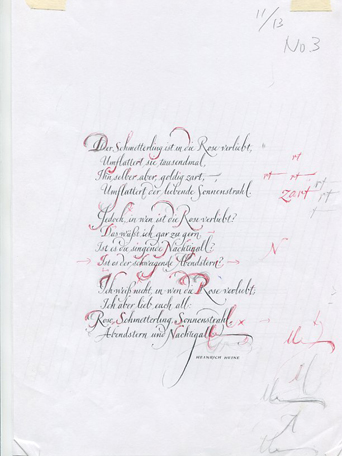 11/13
No 3
Der Schmetterling ist in die Rose verliebt,
Umflattert sie tausendmal,
Ihn selber aber, goldig zart,
Umflattert der liebende Sonnenstrahl.
Jedoch, in wen ist die Rose verliebt?
Das wüßt ich gar zu gern.
Ist es die singende Nachtigall?
Ist es der schweigende Abendstern?
Ich weiß nicht, in wen die Rose verliebt;
Ich aber lieb euch all:
Rose, Schmetterling, Sonnenstrahl,
Abendstern und Nachtigall.
HEINRICH HEINE
rt
rt rt
zart
rt
N